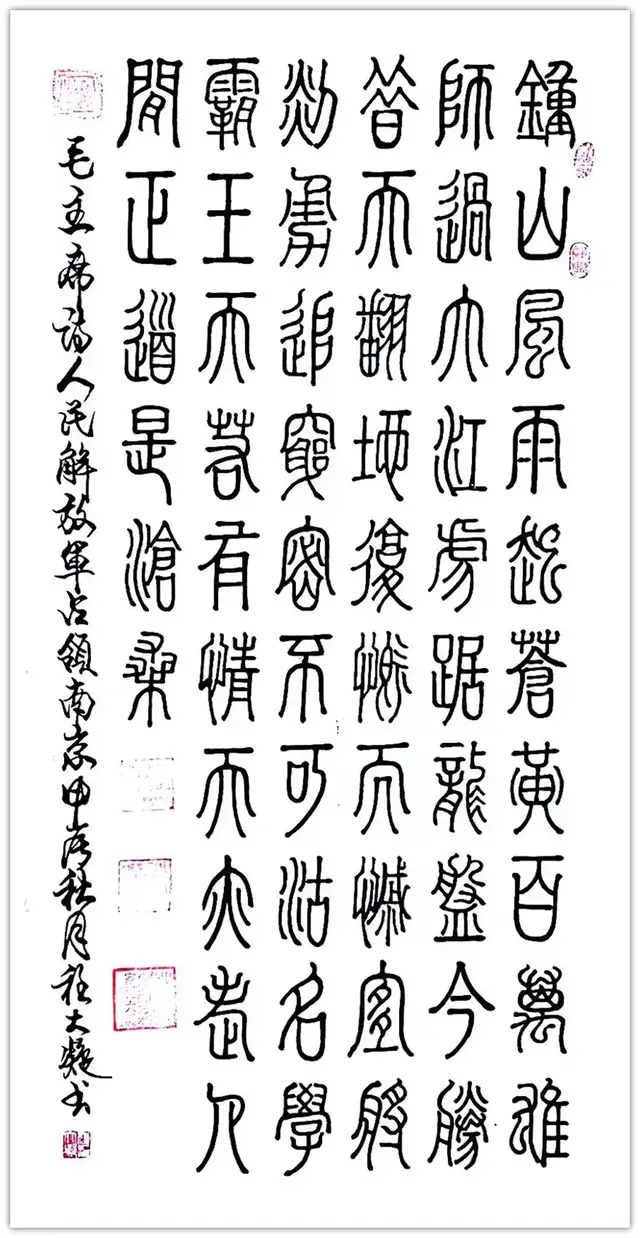 鐘山風雨起蒼黃百萬雄
師過大江虎踞龍盤今勝
昔天翻地復慨而慷宜將
剩勇追窮寇不可沽名學
霸王天若有情天亦老人
閒正道是滄桑
毛主席詩人民解放軍占領南京甲辰秋月大凝书